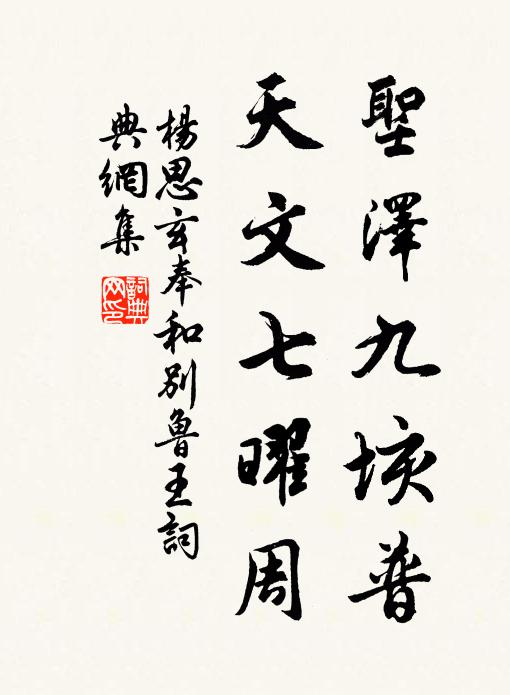 聖澤九垓普
天文七曜周
楊思玄奉和別魯王詞
典網集
詞典网印